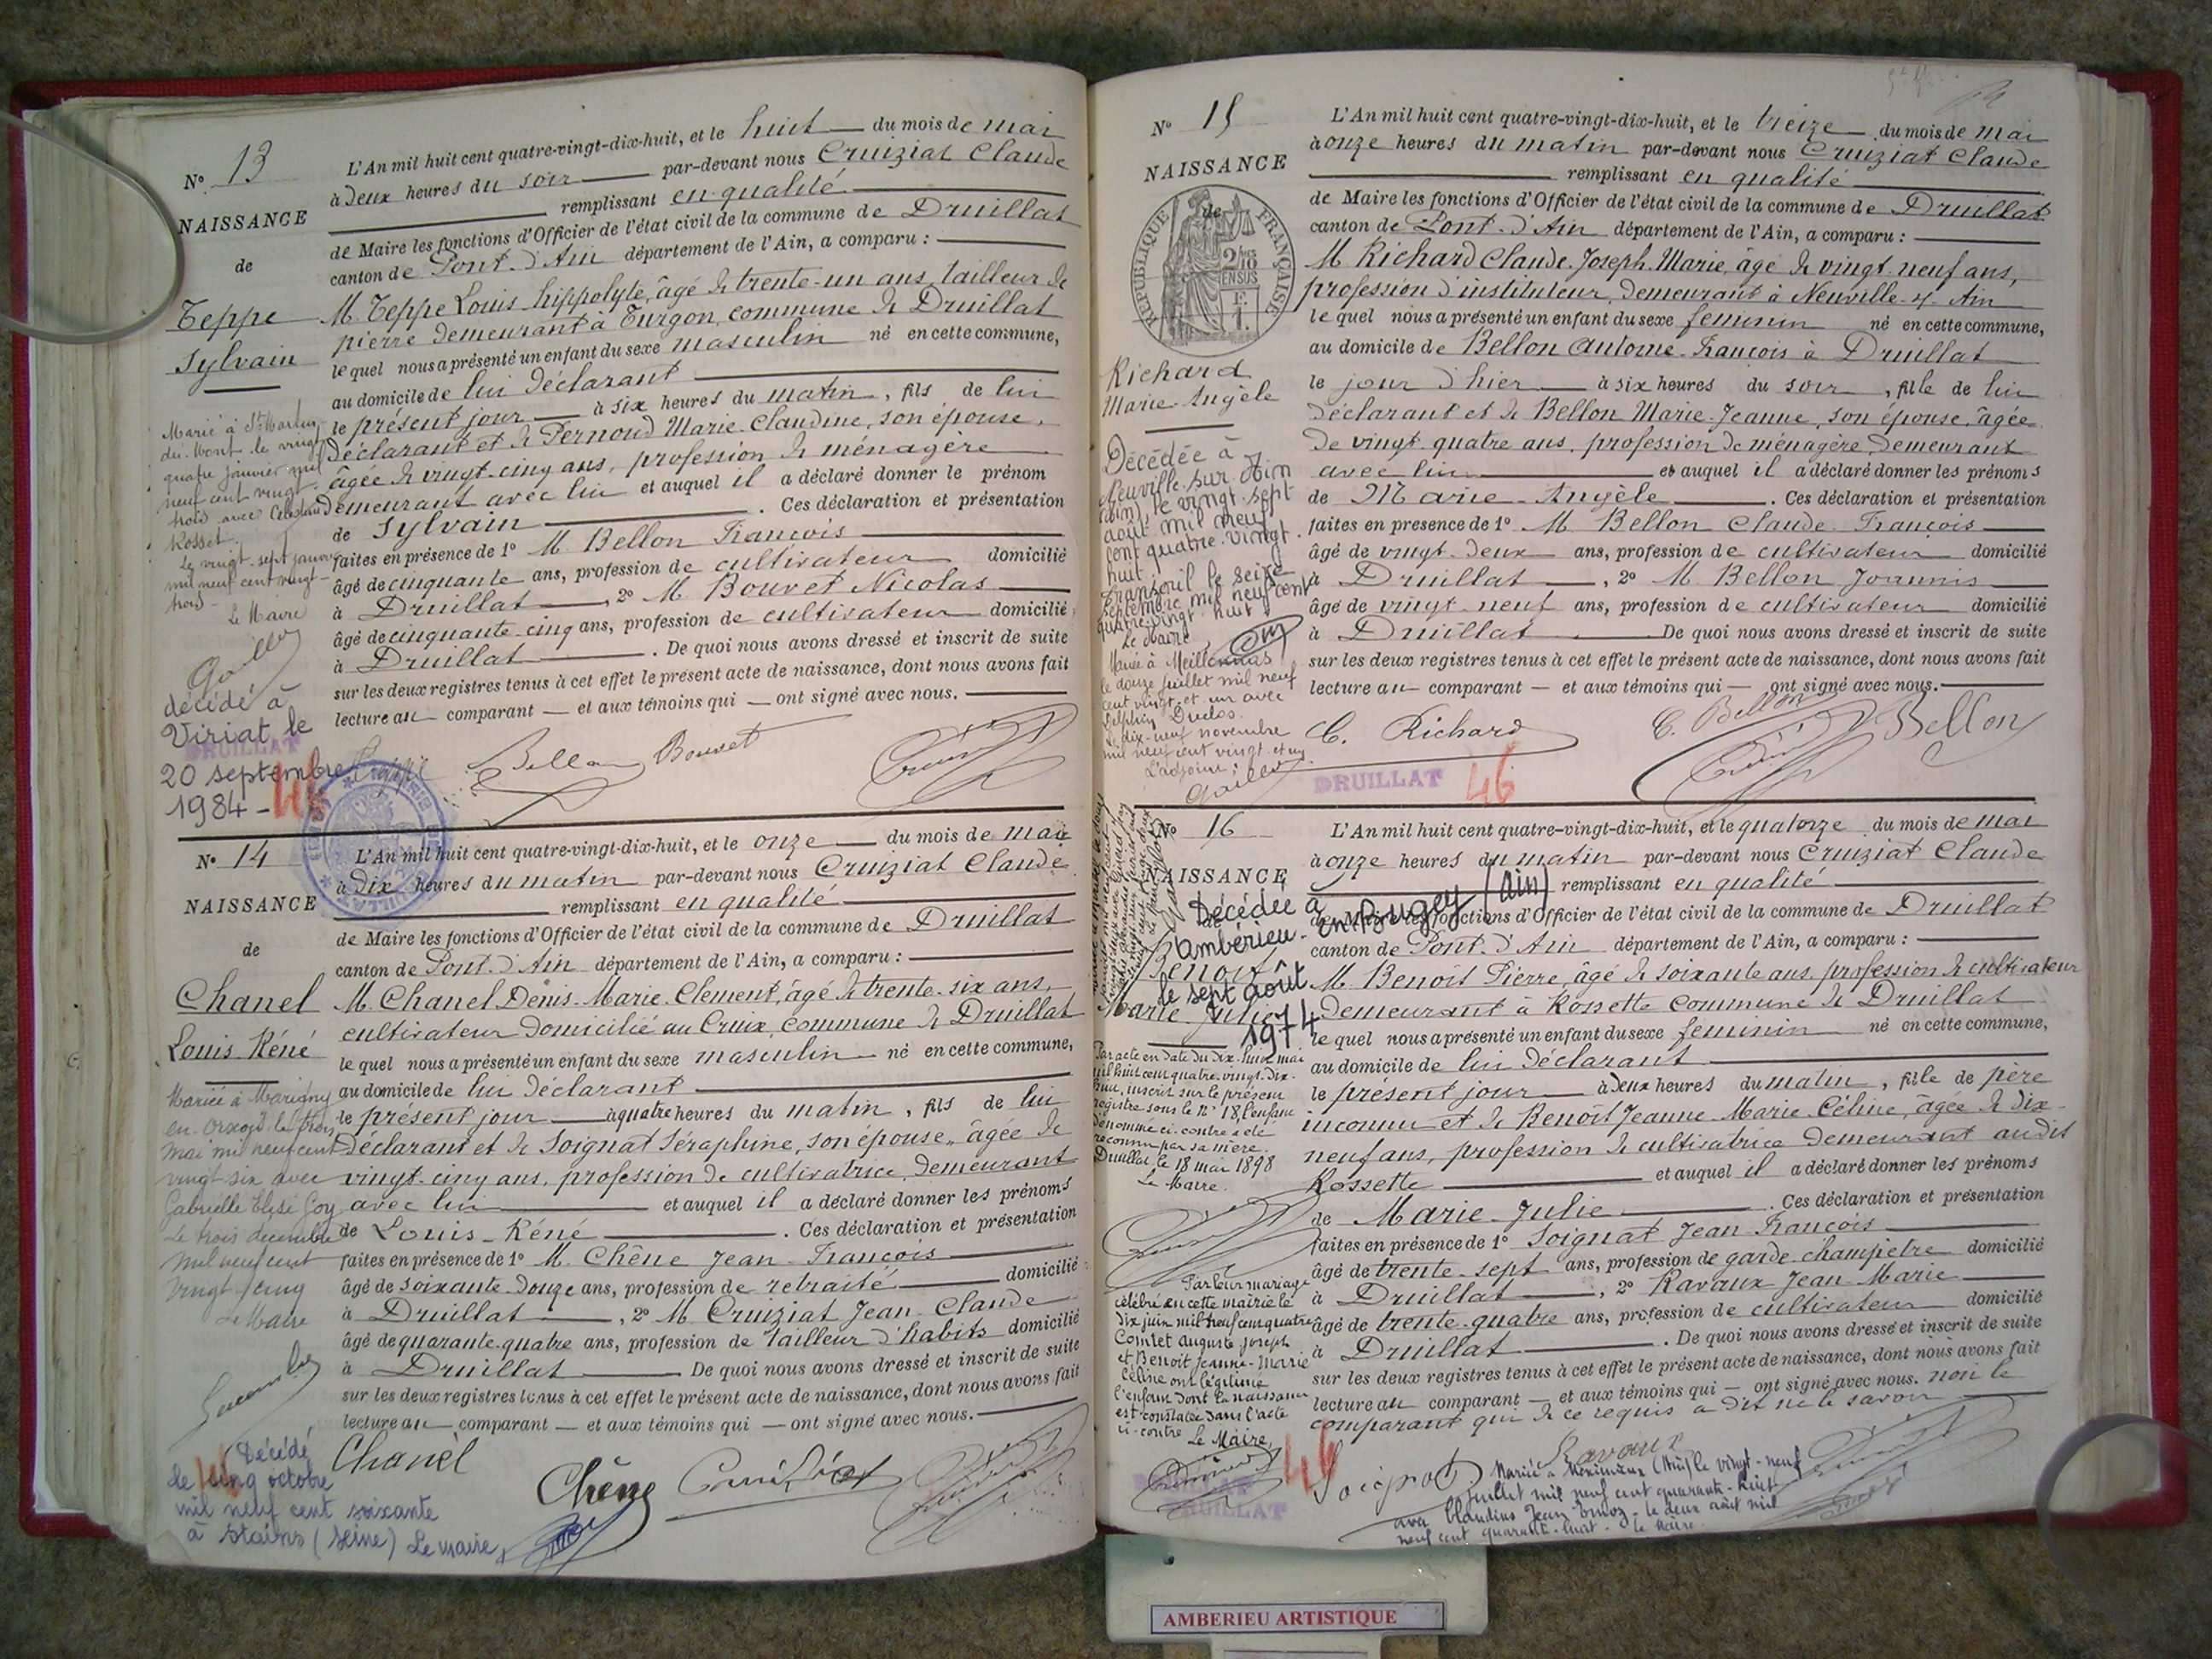 N° 13
NAISSANCE
de
Teppe
Sylvain
L'An mil huit cent quatre-vingt-dix-huit, et le huit du mois de mai
à deux heures du soir par-devant nous Cruiziat Claude
remplissant en qualité
de Maire les fonctions d'Officier de l'état civil de la commune de Druillat
canton de Pont-d'Ain département de l'Ain, a comparu :
M. Teppe Louis hippolyte, âgé de trente-un ans, tailleur de
pierre demeurant à Turgon, commune de Druillat
lequel nous a présenté un enfant du sexe masculin né en cette commune,
au domicile de lui déclarant
le présent jour à six heures du matin, fils de lui
déclarant et de Pernoud Marie-Claudine, son épouse,
âgée de vingt-cinq ans, profession de ménagère
demeurant avec lui et auquel il a déclaré donner le prénom
de Sylvain . Ces déclaration et présentation
faites en présence de 1° M. Bellon François
âgé de cinquante ans, profession de cultivateur domicilié
à Druillat , 2° M. Bouvet Nicolas
âgé de cinquante-cinq ans, profession de cultivateur domicilié
à Druillat . De quoi nous avons dressé et inscrit de suite
sur les deux registres tenus à cet effet le présent acte de naissance, dont nous avons fait
lecture au comparant et aux témoins qui ont signé avec nous.
Marié à St Martin
du-Mont le vingt
quatre janvier mil
neuf cent vingt-
trois avec
Rosset.
Le vingt-sept janvier
mil neuf cent vingt-
trois-
Le Maire
décédé à
Viriat le
20 septembre
1984-
DRUILLAT
46
Bellon Bouvet
N° 14
NAISSANCE
de
Chanel
Louis-Réné
L'An mil huit cent quatre-vingt-dix-huit, et le onze du mois de mai
à dix heures du matin par-devant nous Cruiziat Claude
remplissant en qualité
de Maire les fonctions d'Officier de l'état civil de la commune de Druillat
canton de Pont-d'Ain département de l'Ain, a comparu :
M. Chanel Denis-Marie-Clement, âgé de trente-six ans,
cultivateur domicilié au Cruix, commune de Druillat
lequel nous a présenté un enfant du sexe masculin né en cette commune,
au domicile de lui déclarant
le présent jour à quatre heures du matin, fils de lui
déclarant et de Soignat Séraphine, son épouse, âgée de
vingt-cinq ans, profession de cultivatrice, demeurant
avec lui et auquel il a déclaré donner les prénoms
de Louis-Réné . Ces déclaration et présentation
faites en présence de 1° M. Chêne Jean-François
âgé de soixante-douze ans, profession de retraité domicilié
à Druillat , 2° M. Cruiziat Jean-Claude
âgé de quarante-quatre ans, profession de tailleur d'habits domicilié
à Druillat De quoi nous avons dressé et inscrit de suite
sur les deux registres tenus à cet effet le présent acte de naissance, dont nous avons fait
lecture au comparant et aux témoins qui ont signé avec nous.
Marié à Marigny
le trois
mai mil neuf cent
vingt-six avec
Gabrielle Elysé Goy
Le trois decembre
mil neuf cent
vingt
Le Maire
Décédé
le cinq octobre
mil neuf cent soixante
à Stains (Seine) Le Maire,
Chanel
Chêne Cruiziat
N° 15
NAISSANCE
de
RÉPUBLIQUE FRANÇAISE
2/10
EN SUS
Richard
Marie-Angèle
L'An mil huit cent quatre-vingt-dix-huit, et le treize du mois de mai
à onze heures du matin par-devant nous Cruiziat Claude
remplissant en qualité
de Maire les fonctions d'Officier de l'état civil de la commune de Druillat
canton de Pont-d'Ain département de l'Ain, a comparu :
M. Richard Claude-Joseph-Marie, âgé de vingt-neuf ans,
profession d'instituteur, demeurant à Neuville-s/-Ain
lequel nous a présenté un enfant du sexe feminin né en cette commune,
au domicile de Bellon Antoine-François à Druillat
le jour d'hier à six heures du soir, fille de lui
déclarant et de Bellon Marie-Jeanne, son épouse, âgée
de vingt-quatre ans, profession de ménagère, demeurant
avec lui et auquel il a déclaré donner les prénoms
de Marie-Angèle . Ces déclaration et présentation
faites en présence de 1° M. Bellon Claude-François
âgé de vingt-deux ans, profession de cultivateur domicilié
à Druillat , 2° M. Bellon Joannis
âgé de vingt-neuf ans, profession de cultivateur domicilié
à Druillat De quoi nous avons dressé et inscrit de suite
sur les deux registres tenus à cet effet le présent acte de naissance, dont nous avons fait
lecture au comparant et aux témoins qui ont signé avec nous.
Décédée à
Neuville-sur-Ain
(Ain) le vingt-sept
août mil neuf
cent quatre-vingt-
huit.
Transcrit le seize
septembre mil neuf cent
quatre-vingt-huit
Le Maire
Mariée à Meillonnas
le douze juillet mil neuf
cent vingt-et-un avec
Duclos.
Le dix-neuf novembre
mil neuf cent vingt-et-un
L'adjoint :
C. Richard C. Bellon Bellon
DRUILLAT 46
N° 16
NAISSANCE
de
Benoit
Marie-Julie
Décédée à
Ambérieu-en-Bugey (Ain)
le sept août
1974
L'An mil huit cent quatre-vingt-dix-huit, et le quatorze du mois de mai
à onze heures du matin par-devant nous Cruiziat Claude
remplissant en qualité
de Maire les fonctions d'Officier de l'état civil de la commune de Druillat
canton de Pont-d'Ain département de l'Ain, a comparu :
M. Benoit Pierre, âgé de soixante ans, profession de cultivateur
demeurant à Rossette commune de Druillat
lequel nous a présenté un enfant du sexe feminin né en cette commune,
au domicile de lui déclarant
le présent jour à deux heures du matin, fille de père
inconnu et de Benoit Jeanne-Marie-Céline, âgée de dix-
neuf ans, profession de cultivatrice demeurant audit
Rossette et auquel il a déclaré donner les prénoms
de Marie-Julie . Ces déclaration et présentation
faites en présence de 1° Soignat Jean-François
âgé de trente-sept ans, profession de garde-champêtre domicilié
à Druillat , 2° Ravaux Jean-Marie
âgé de trente-quatre ans, profession de cultivateur domicilié
à Druillat . De quoi nous avons dressé et inscrit de suite
sur les deux registres tenus à cet effet le présent acte de naissance, dont nous avons fait
lecture au comparant et aux témoins qui ont signé avec nous. non le
comparant qui de ce requis a dit ne le savoir
Par acte en date du dix-huit mai
mil huit cent quatre-vingt-dix-
huit, inscrit sur le présent
registre sous le n° 18, l'enfant
dénommé ci-contre a été
reconnu par sa mère.
Druillat, le 18 mai 1898
Le Maire.
Par leur mariage
célébré en cette mairie le
dix juin mil neuf cent quatre
Comtet Auguste Joseph
et Benoit Jeanne-Marie
Céline ont légitimé
l'enfant dont la naissance
est constatée dans l'acte
ci-contre Le Maire,
46
DRUILLAT
Soignat Ravaux
Mariée à Meximieux (Ain) le vingt-neuf
juillet mil neuf cent quarante-huit
avec Claudius Jean - le deux août mil
neuf cent quarante-huit - le Maire.
AMBERIEU ARTISTIQUE